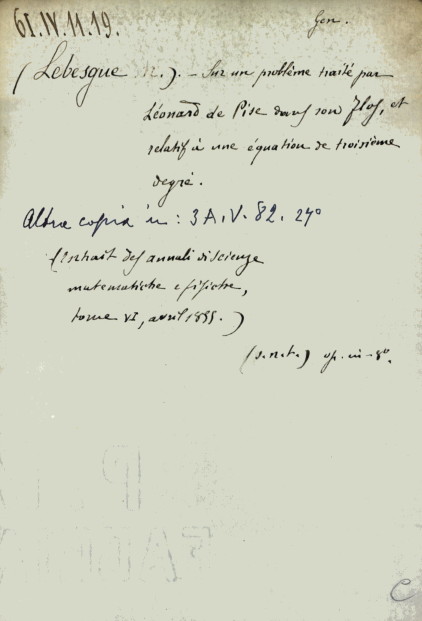 61.IV.11.19.
Gen.
(Lebesgue ). - Sur un problème traité par
Léonard de Pise dans son Flos, et
relatif à une équation de troisième
degré.
Altra copia in : 3 A. V. 82. 27°
(Extrait des annali di scienze
matematiche e fisiche,
tome VI, avril 1855.)
(s.n.t.) op. in-8°.
C